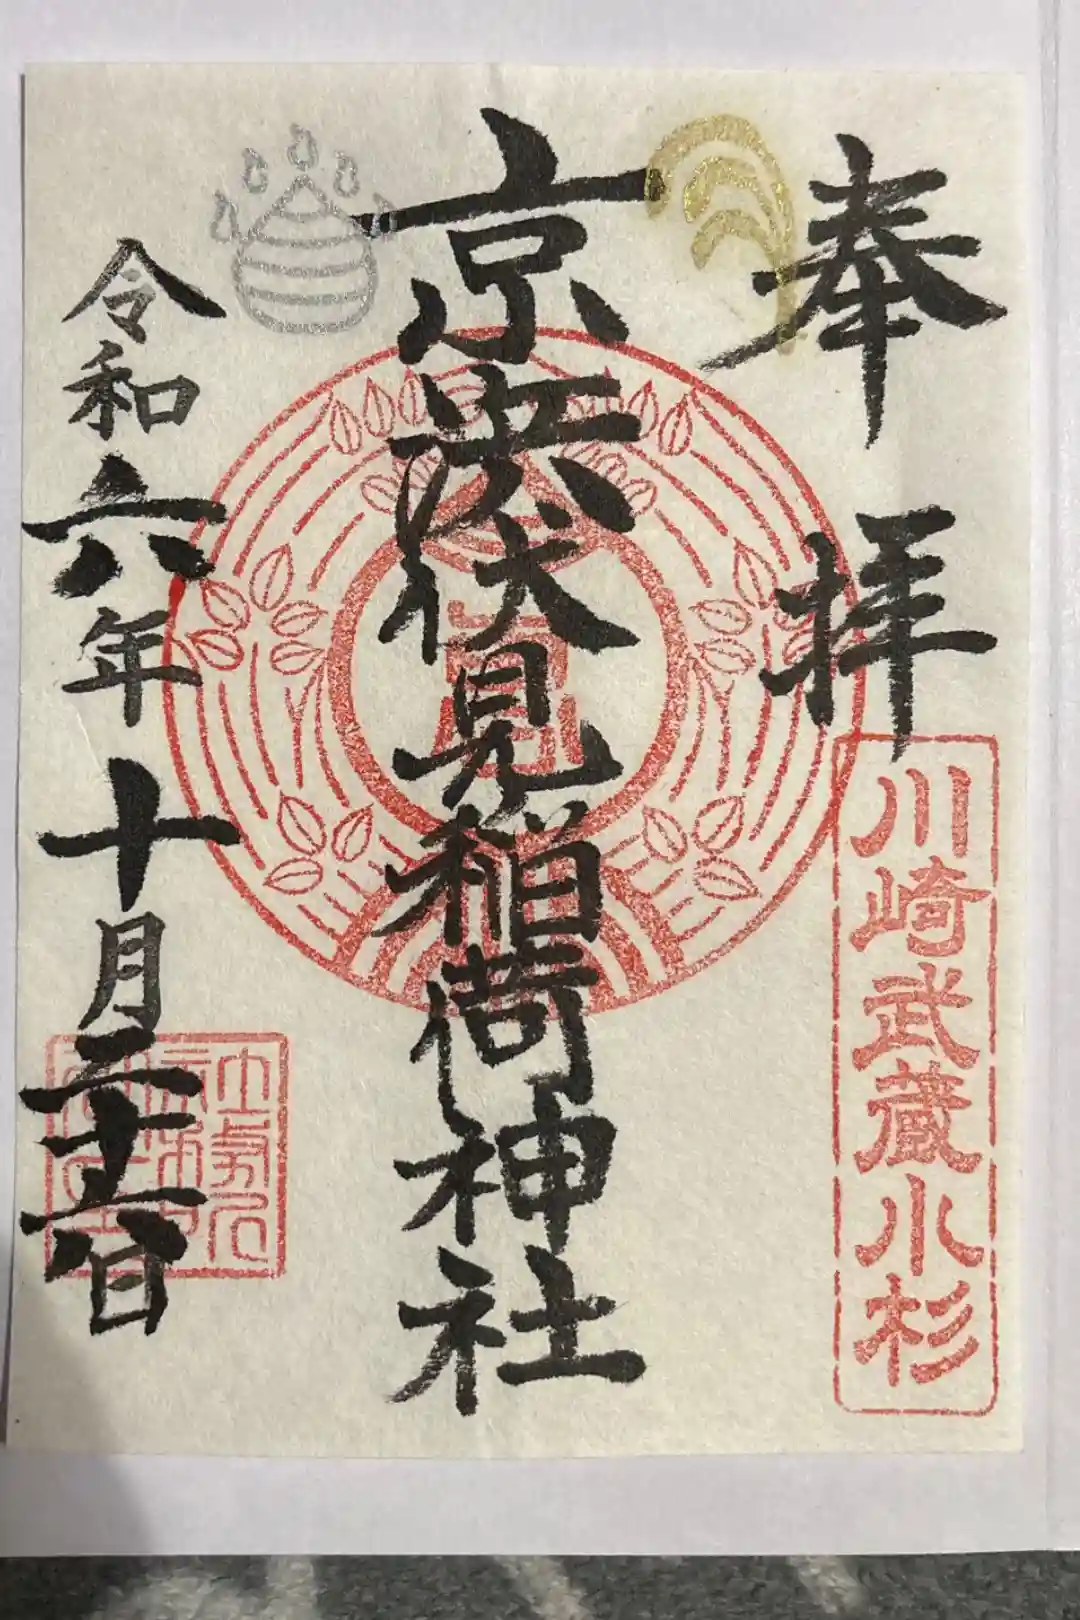 奉拝
川崎武蔵小杉
京浜伏見稲荷神社
令和六年十月二十六日